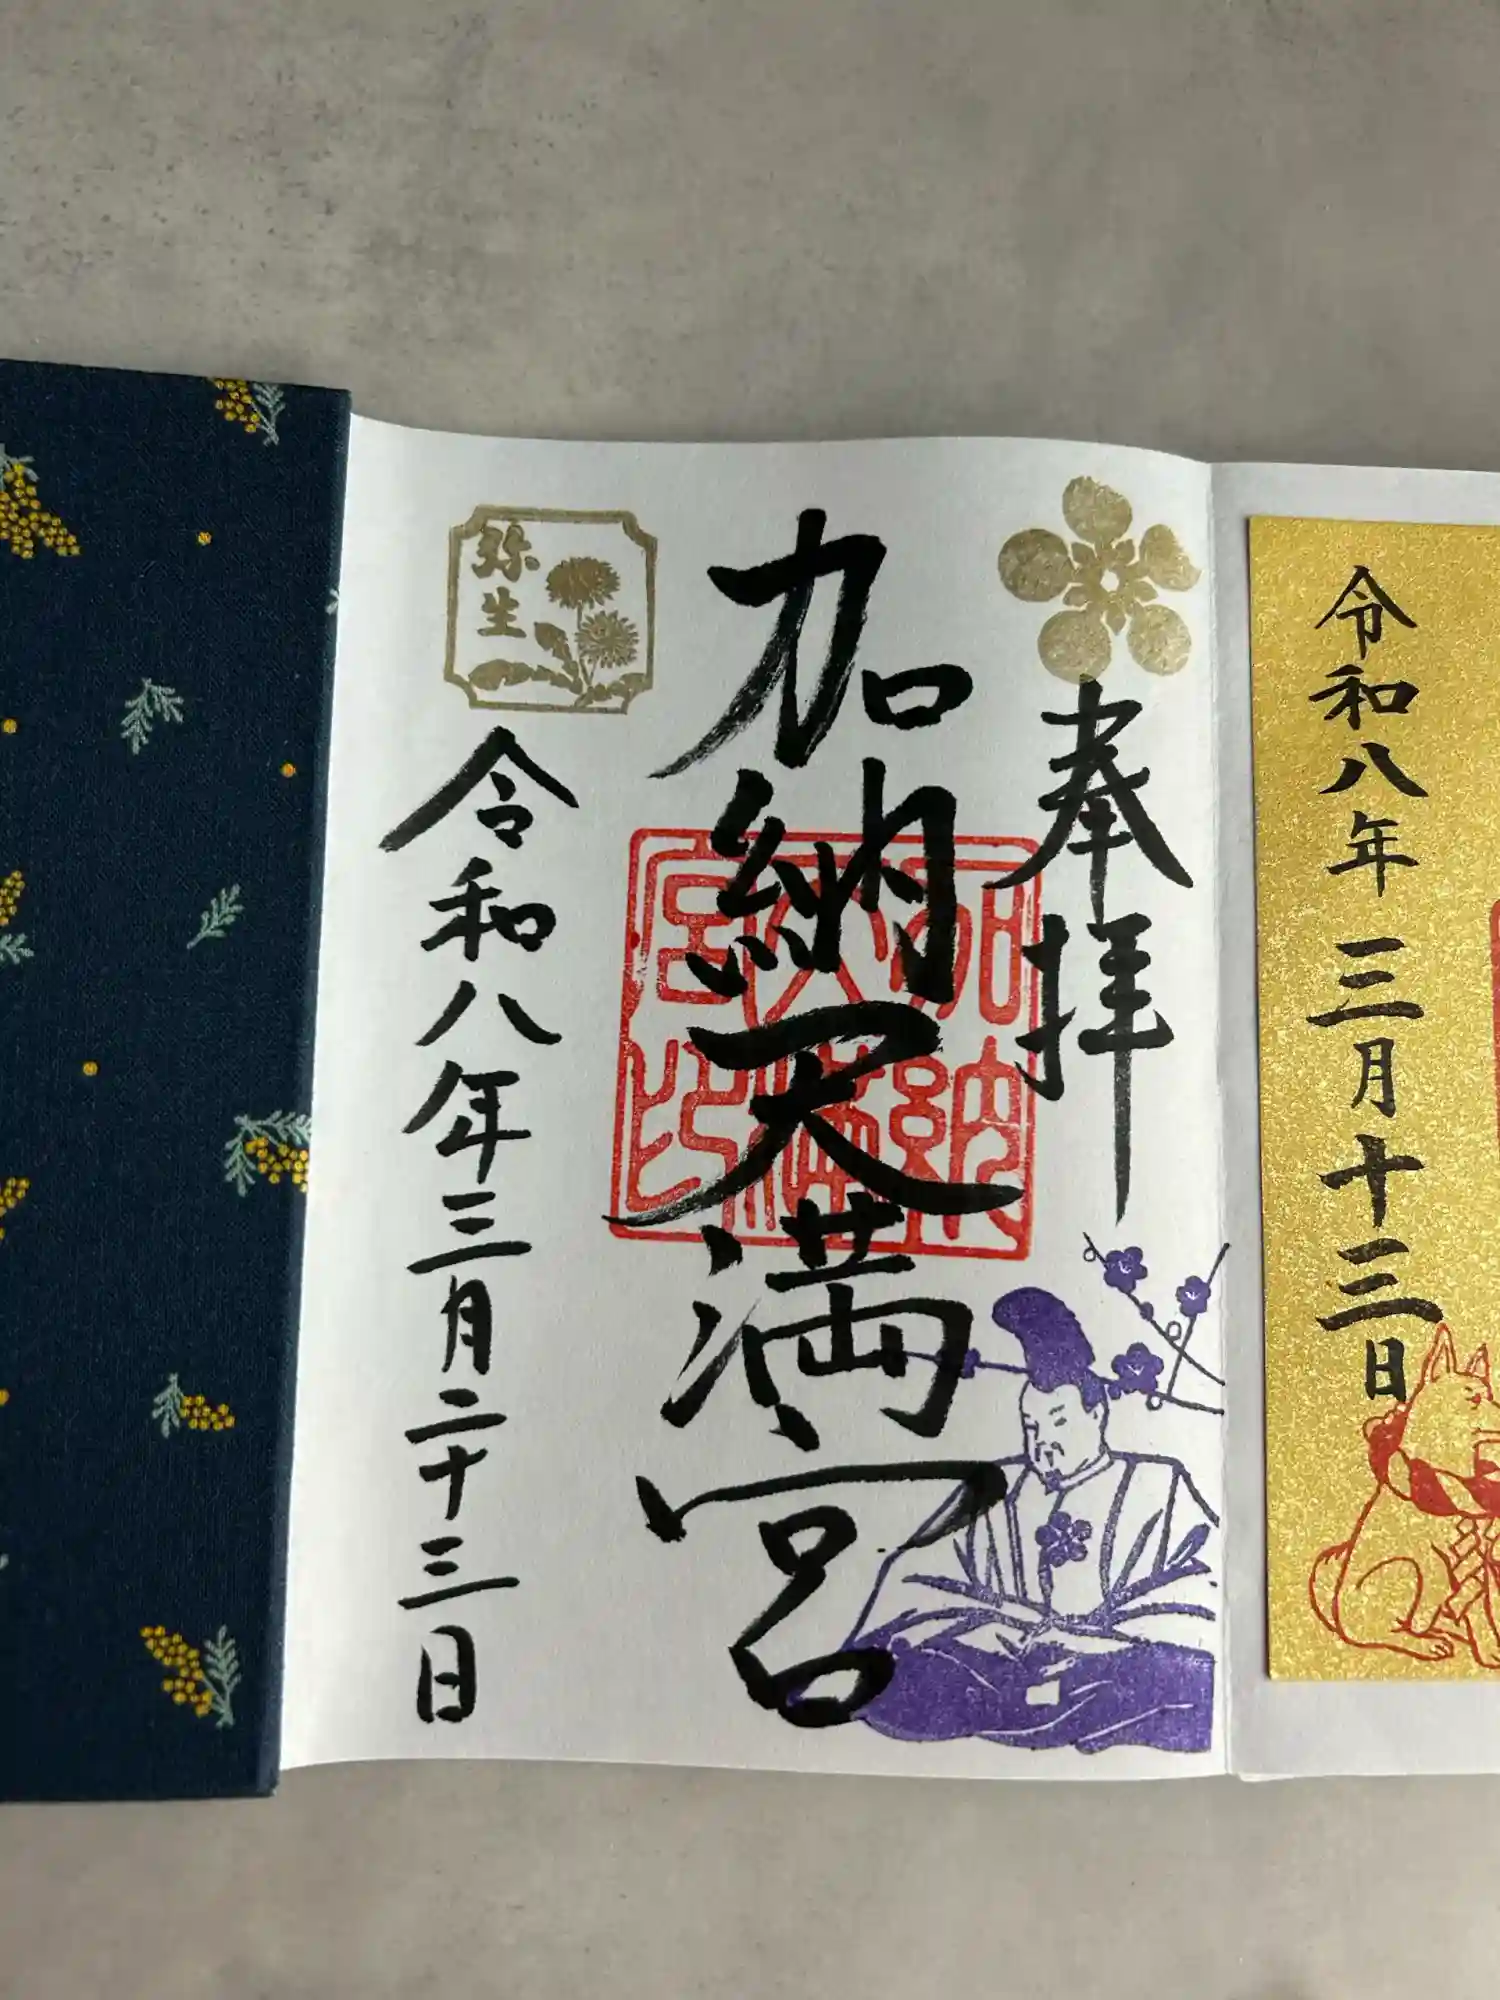 令和八年三月十三日
奉拝
加納天満宮
加納天満宮印
弥生
令和八年三月二十三日